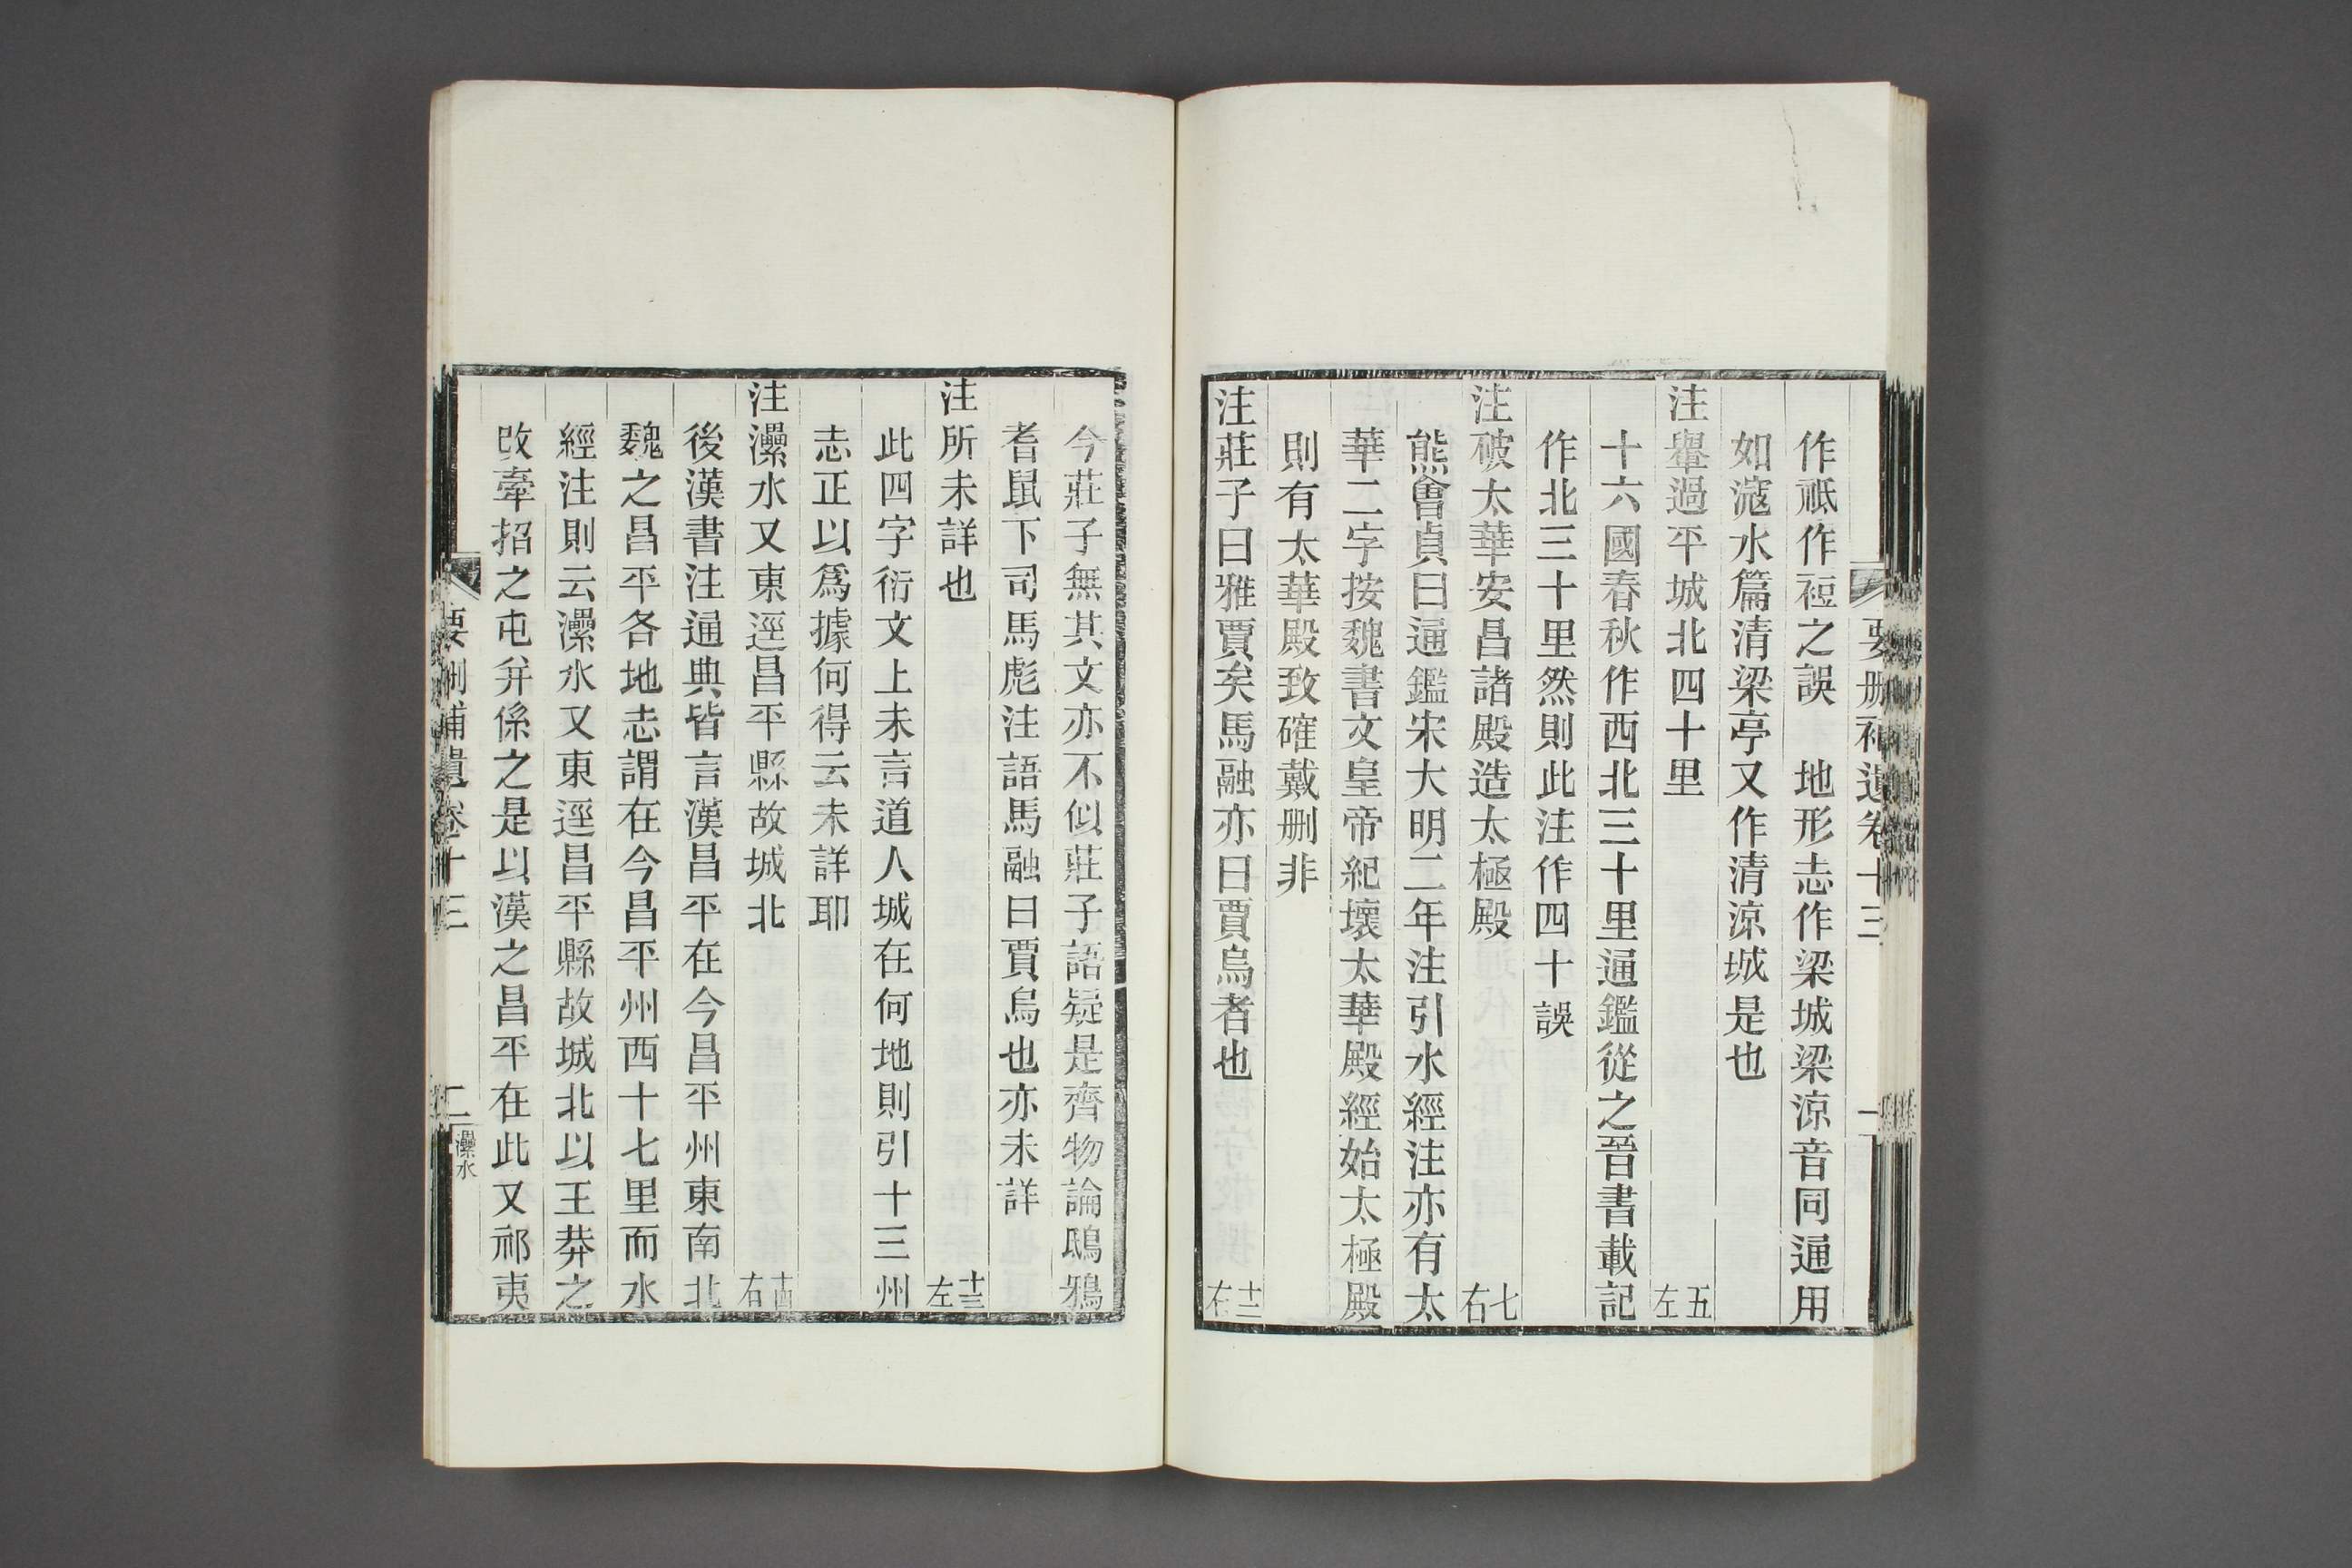 要刪補遺卷十三 一
作祗作祳之誤 地形志作梁城梁涼音同通用
如㴾水篇清梁亭又作清涼城是也
注舉過平城北四十里 五左
十六國春秋作西北三十里通鑑從之晉書載記
作北三十里然則此注作四十誤
注破太華安昌諸殿造太極殿 七右
熊會貞曰通鑑宋大明二年注引水經注亦有太
華二字按魏書文皇帝紀壞太華殿經始太極殿
則有太華殿致確戴刪非
注莊子曰雅賈矣馬融亦曰賈烏者也 十三右
今莊子無其文亦不似莊子語疑是齊物論鴟鴉
耆鼠下司馬彪注語馬融曰賈烏也亦未詳
注所未詳也 十三左
此四字衍文上未言道人城在何地則引十三州
志正以爲據何得云未詳耶
注灅水又東逕昌平縣故城北 十四右
後漢書注通典皆言漢昌平在今昌平州東南北
魏之昌平各地志謂在今昌平州西十七里而水
經注則云灅水又東逕昌平縣故城北以王莽之
改牽招之屯并係之是以漢之昌平在此又祁夷
要刪補遺卷十三 二 灅水